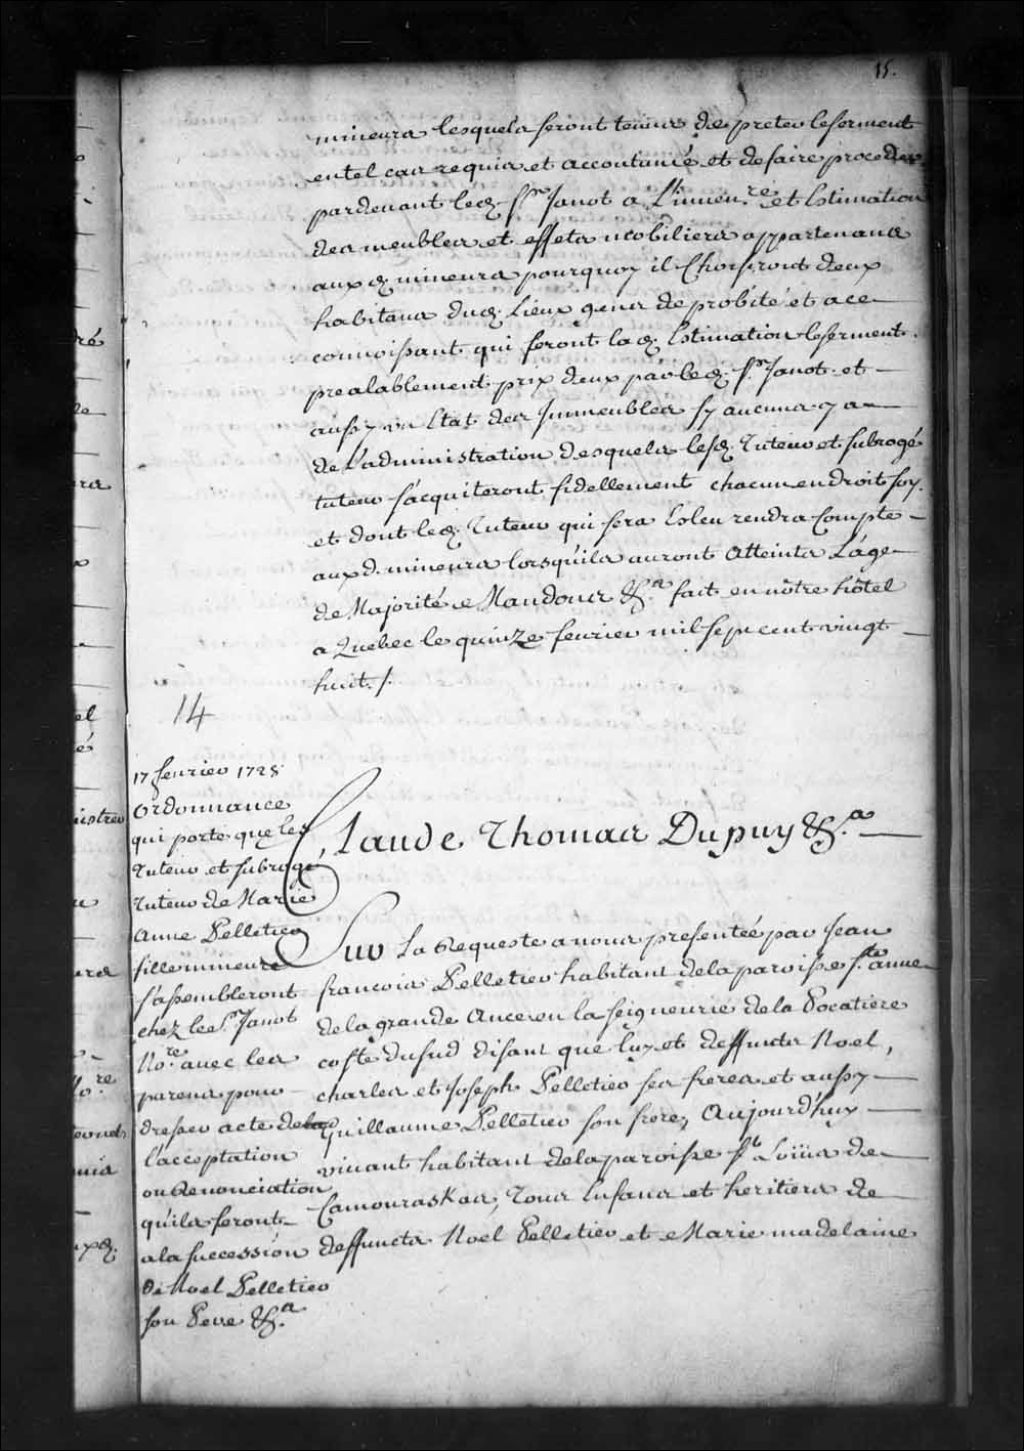 15.
mineurs lesquels seront tenus de preter le serment
en tel cas requis et accoutumé et de faire proceder
pardevant led. Sr. Janot a L'inven.re et Estimation
des meubles et effets mobiliers appartenans
aux d. mineurs pourquoy il Choisiront deux
habitans dud. Lieux gens de probité et a ce
connoissant qui feront lad. Estimation le serment
prealablement prix deux par led. Sr. Janot et
aussy un Etat des Immeubles sy aucuns y a
de L'administration desquels lesd. Tuteur et subrogé
tuteur s'acquiteront fidellement chacun en droit soy.
et dont led. Tuteur qui sera Esleu rendra Compte
aux d. mineurs lorsqu'ils auront Atteints L'âge
de Majorité Mandons &.a fait en nôtre hôtel
a Quebec le quinze fevrier mil sept cent vingt
huit./.
14
17 fevrier 1728
Ordonnance
qui porte que les
Tuteur et subrogé
Tuteur de Marie
Anne Pelletier
fille mineure
s'assembleront
chez le Sr. Janot
No.re avec les
parens pour
dresser acte de la
l'acceptation
ou Renonciation
qu'ils feront
a la succession
de Noel Pelletier
son Pere &.a
Claude Thomas Dupuy &.a
Sur La Requeste a nous presentée par Jean
francois Pelletier habitant de la paroisse Ste. anne
de la grande Ance en la seigneurie de la Pocatiere
coste du sud disant que luy et deffuncts Noel,
charles et Joseph Pelletier ses freres et aussy
Guillaume Pelletier son frere, Aujourd'huy
vivant habitant de la paroisse St. Loüis de
Camouraskas, Tous Enfans et heritiers de
deffuncts Noel Pelletier et Marie madelaine